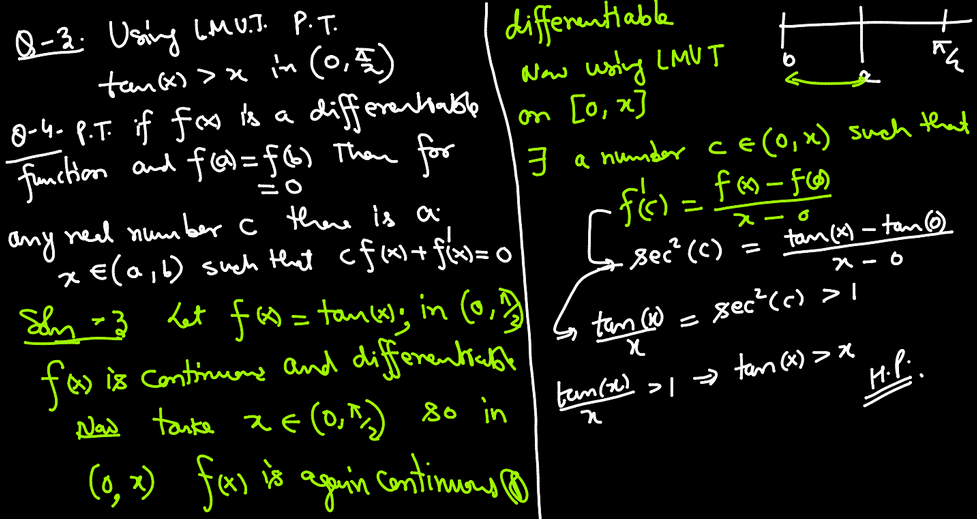 Q-3. Using LMVT. P.T.
tan(x) > x in (0, π/2)
Q-4. P.T. if f(x) is a differentiable
function and f(a) = f(b) Then for
= 0
any real number c there is a
x ∈ (a, b) such that c f(x) + f'(x) = 0
Soln-3 Let f(x) = tan(x); in (0, π/2)
f(x) is continuous and differentiable
Now take x ∈ (0, π/2) so in
(0, x) f(x) is again continuous &
differentiable
Now using LMVT
on [0, x]
∃ a number c ∈ (0, x) such that
f'(c) = f(x) - f(0) / x - 0
sec²(c) = tan(x) - tan(0) / x - 0
tan(x) / x = sec²(c) > 1
tan(x) / x > 1 ⇒ tan(x) > x
H.P.
0 π/2